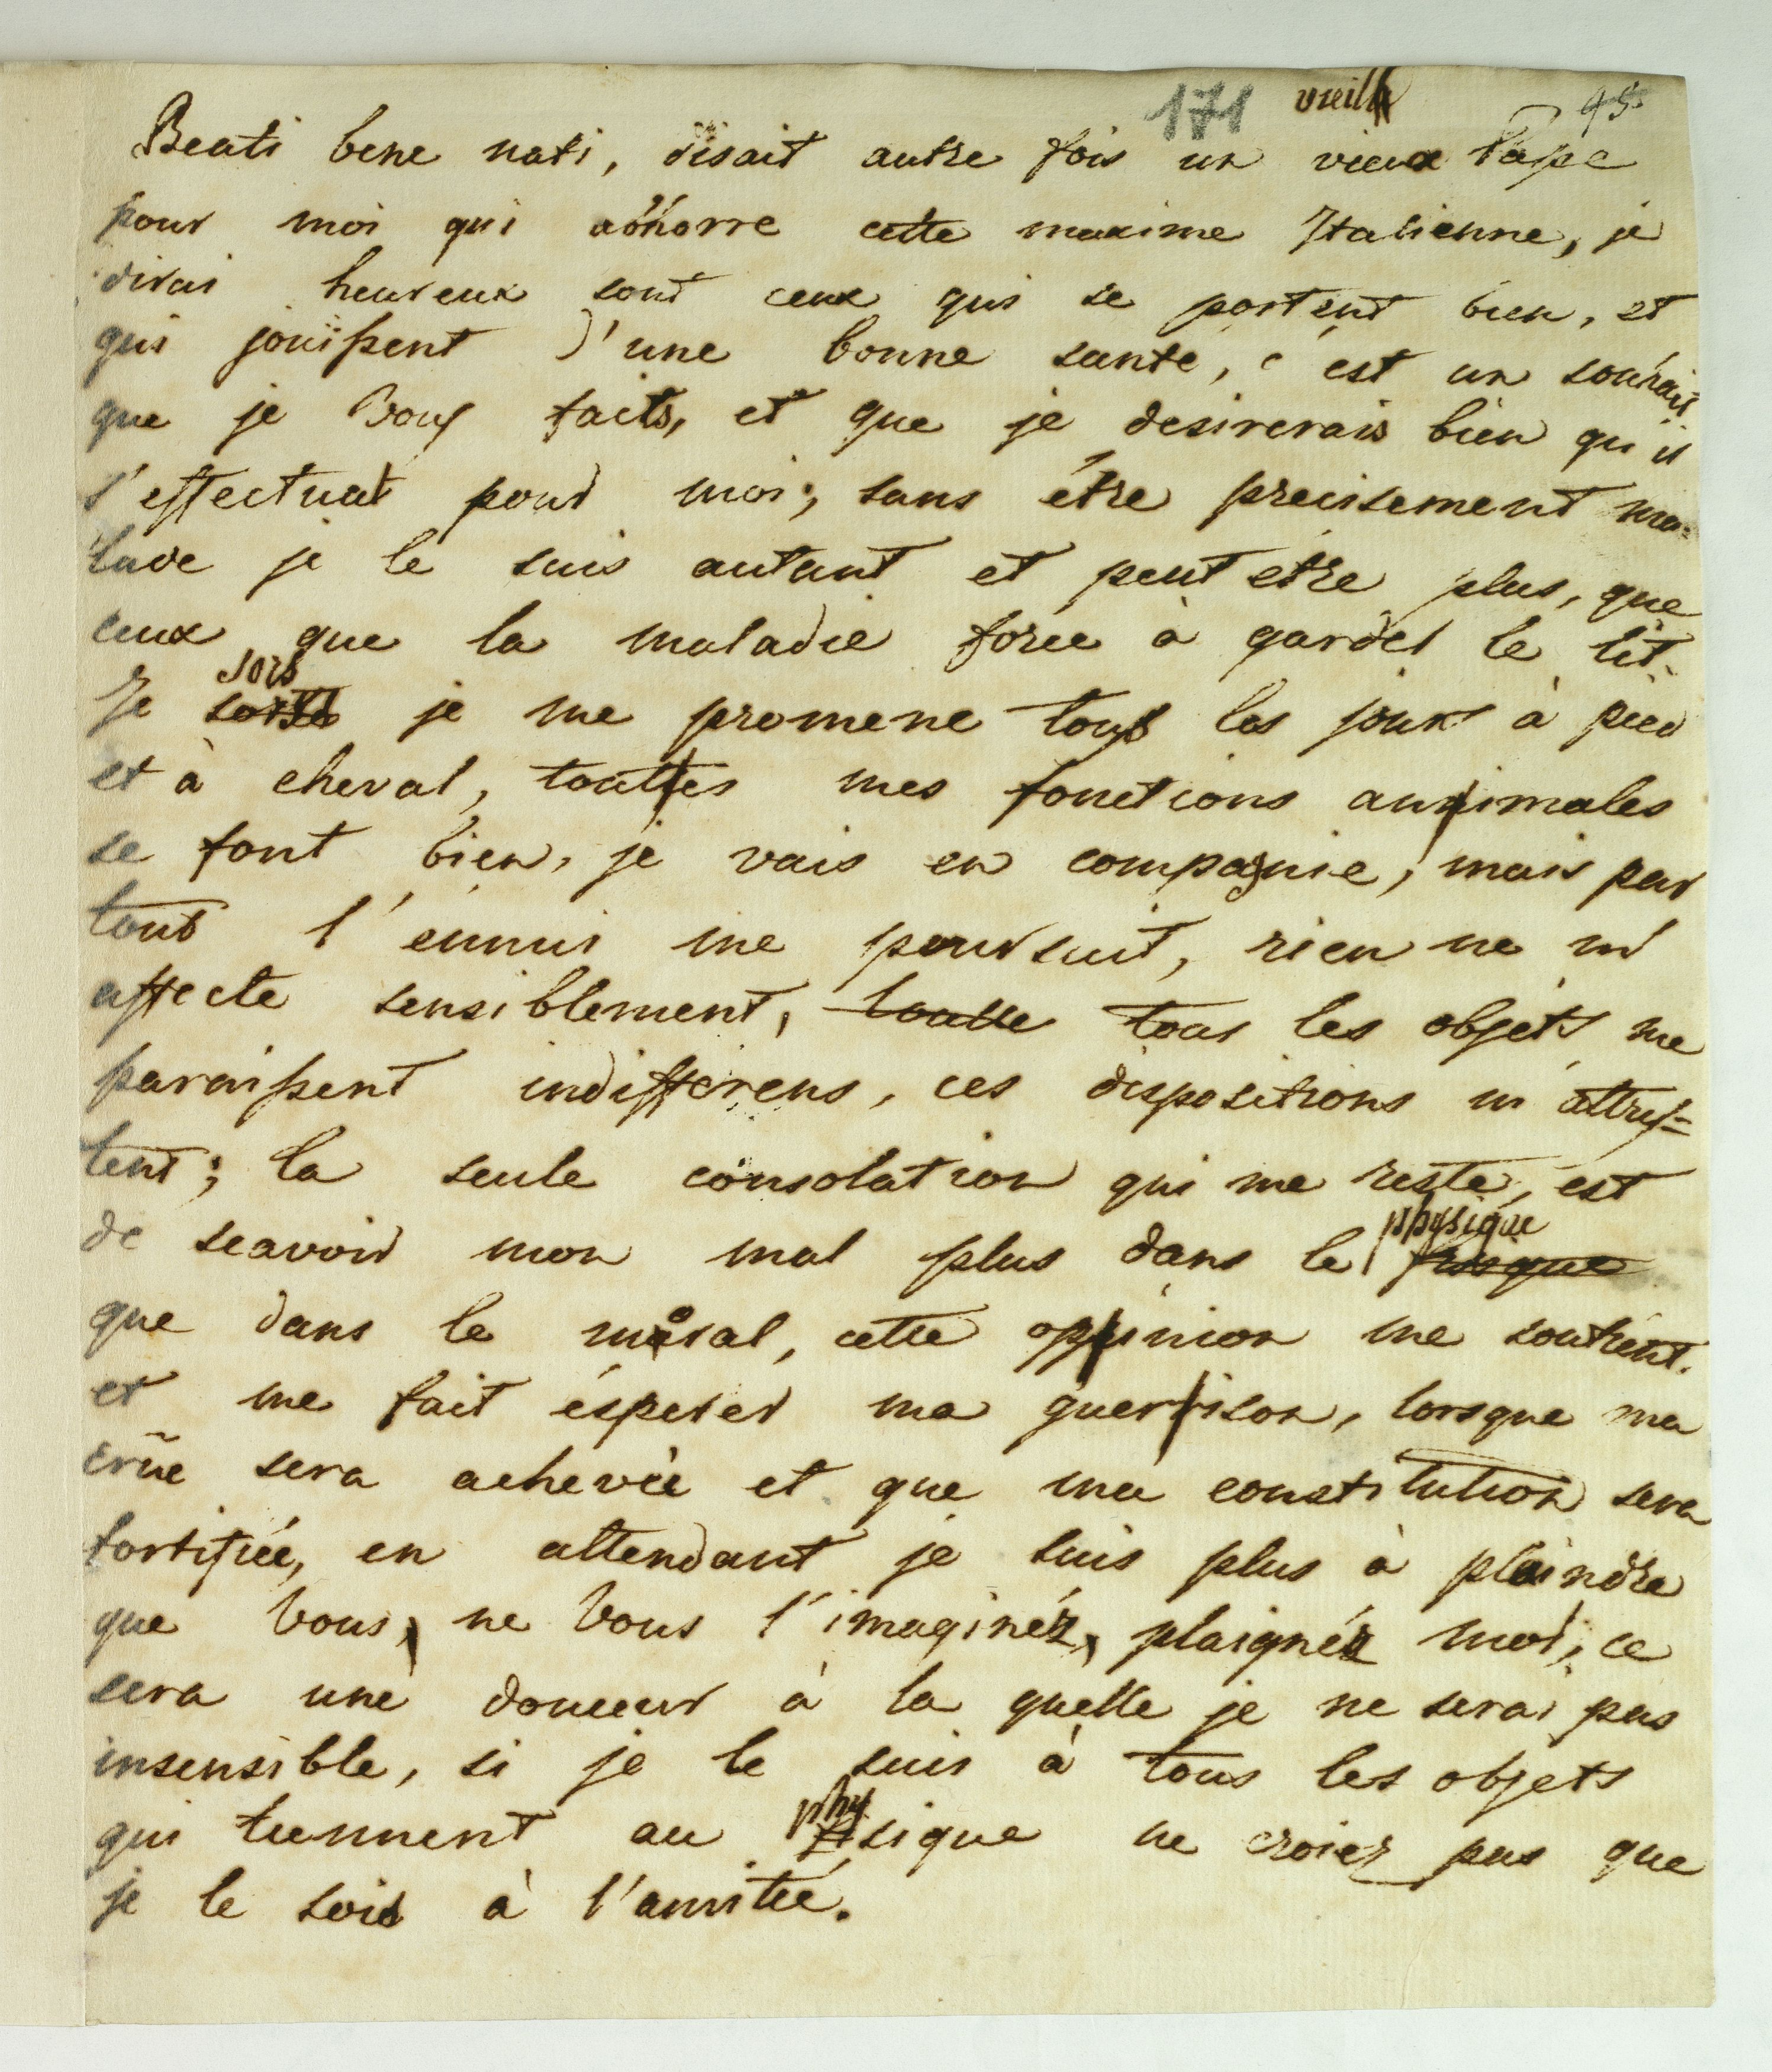 171 vieill 45
Beati bene nati, disait autre fois un vieux Pape
pour moi qui abhorre cette maxime Italienne, je
dirai heureux sont ceux qui se portent bien, et
qui jouissent d'une bonne santé, c'est un souhait
que je Vous faits, et que je desirerais bien qu'il
s'effectuat pour moi; sans étre precisement ma=
lade je le suis autant et peut etre plus, que
ceux que la maladie force à garder le lit.
sors
Je je me promene tous les jours à pied
et à cheval, touttes mes fonctions annimales
se font bien, je vais en compagnie, mais par
tout l'ennui me poursuit, rien ne m'
affecte sensiblement, toutte tous les objets me
paraissent indifferens, ces dispositions m'attris=
tent; la seule consolation qui me reste, est
physique
de scavoir mon mal plus dans le fisique
que dans le moral, cette oppinion me soutient.
et me fait ésperer ma guerrison, lorsque ma
crüe sera achevée et que ma constitution sera
fortifiée, en attendant je suis plus à plaindre
que Vous, ne Vous l'imaginéz, plaignéz moi, ce
sera une douceur à la quelle je ne serai pas
insensible, si je le suis à tous les objets
phy
qui tiennent au fisique ne croiez pas que
je le sois à l'amitié.